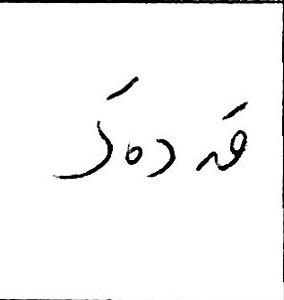 قەدەک